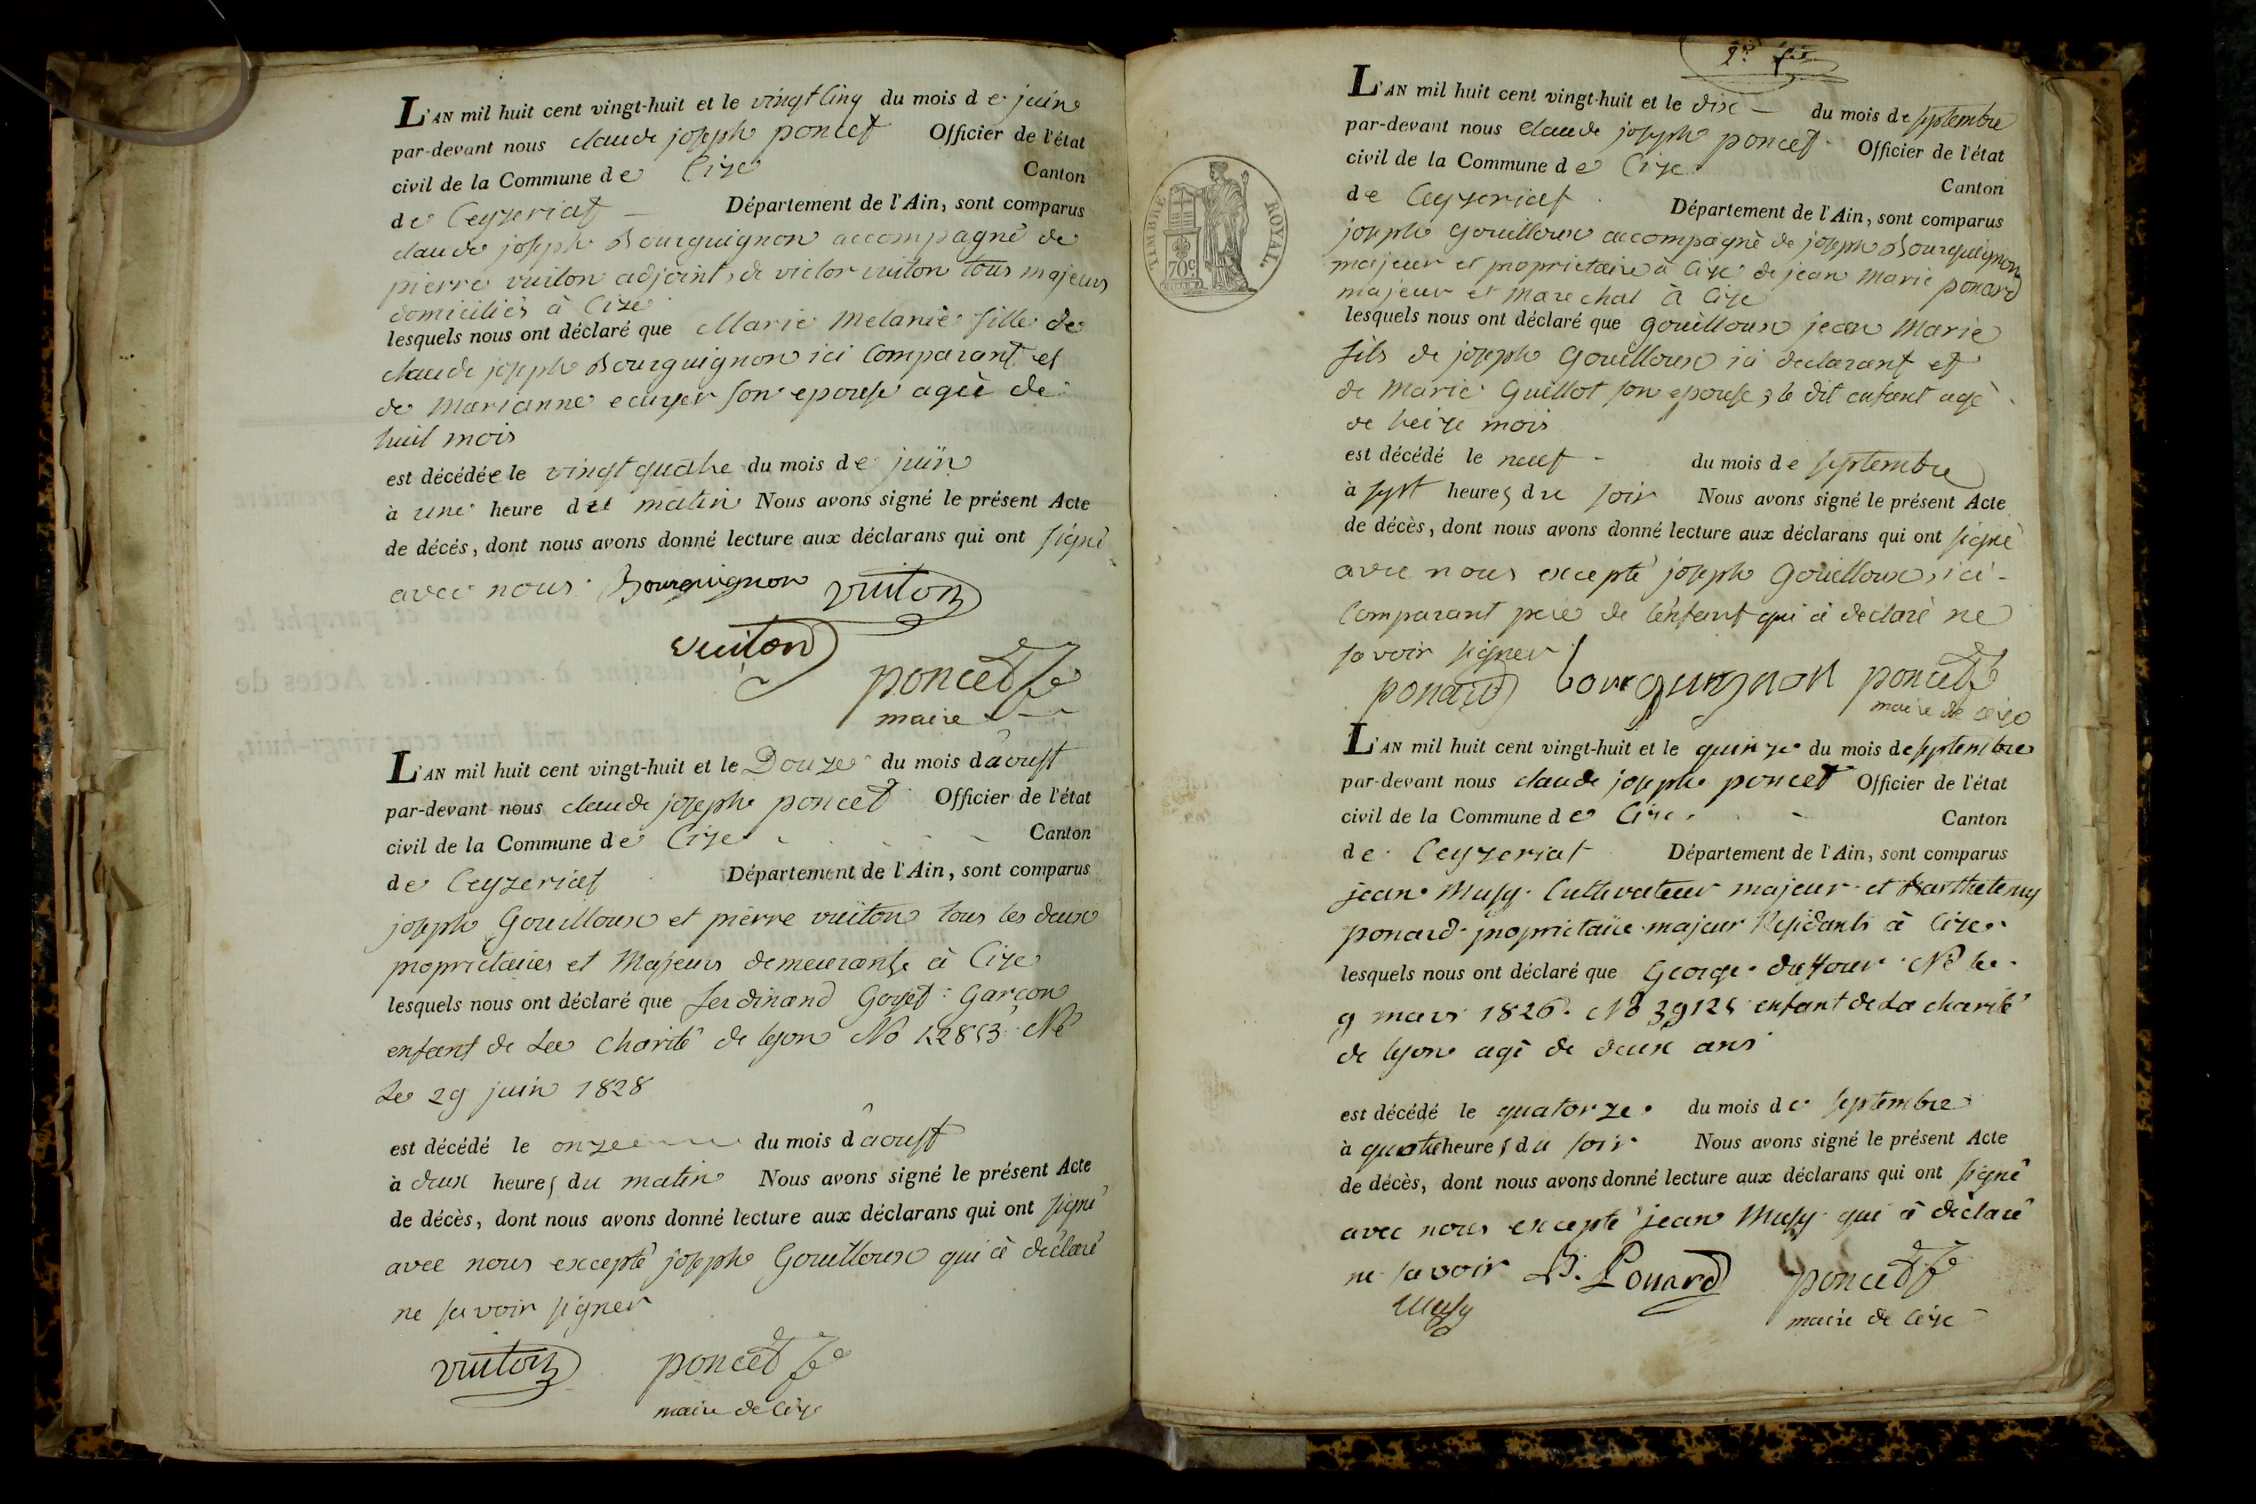 L'AN mil huit cent vingt-huit et le vingt cinq du mois de juin
par-devant nous claude joseph poncet Officier de l'état
civil de la Commune de Cize Canton
de Ceyzeriat Département de l'Ain, sont comparus
claude joseph Bourguignon accompagné de
pierre vuiton adjoint, de victor vuiton tous majeurs
domiciliés à Cize
lesquels nous ont déclaré que Marie Melanie fille de
claude joseph Bourguignon ici Comparant et
de Marianne ecuyer son epouse agée de
huit mois
est décédée le vingt quatre du mois de juin
à une heure du matin Nous avons signé le présent Acte
de décés, dont nous avons donné lecture aux déclarans qui ont signé
avec nous Bourguignon vuiton
vuiton
poncet
maire
L'AN mil huit cent vingt-huit et le Douze du mois d'aoust
par-devant nous claude joseph poncet Officier de l'état
civil de la Commune de Cize Canton
de Ceyzeriat Département de l'Ain, sont comparus
joseph Gouilloux et pierre vuiton tous les deux
proprietaires et Majeurs demeurants à Cize
lesquels nous ont déclaré que ferdinand Goyet garçon
enfant de La Charité de lyon No Né
Le 29 juin 1828
est décédé le onze du mois d'aoust
à deux heures du matin Nous avons signé le présent Acte
de décès, dont nous avons donné lecture aux déclarans qui ont signé
avec nous excepté joseph Gouilloux qui à déclaré
ne savoir signer
vuiton poncet
maire de Cize
TIMBRE ROYAL.
70c
L'AN mil huit cent vingt-huit et le dix du mois de septembre
par-devant nous claude joseph poncet Officier de l'état
civil de la Commune de Cize Canton
de Ceyzeriat Département de l'Ain, sont comparus
joseph Gouilloux accompagné de joseph Bourguignon
majeur et proprietaire à Cize de jean Marie ponard
majeur et Marechal à Cize
lesquels nous ont déclaré que gouilloux jean Marie
fils de joseph Gouilloux ici declarant et
de Marie Guillot son epouse, le dit enfant agé
de treize mois
est décédé le neuf du mois de septembre
à sept heures du soir Nous avons signé le présent Acte
de décès, dont nous avons donné lecture aux déclarans qui ont signé
avec nous excepté joseph Gouilloux, ici
Comparant pere de l'enfant qui à declaré ne
savoir signer
ponard bourguignon poncet
maire de Cize
L'AN mil huit cent vingt-huit et le quinze du mois de septembre
par-devant nous claude joseph poncet Officier de l'état
civil de la Commune de Cize Canton
de Ceyzeriat Département de l'Ain, sont comparus
jean Musy Cultivateur majeur et Barthelemy
ponard proprietaire majeur Residants à Cize
lesquels nous ont déclaré que George dufour Né le
9 mars 1826 No 39125 enfant de La charité
de lyon agé de deux ans
est décédé le quatorze du mois de septembre
à quatre heures du soir Nous avons signé le présent Acte
de décès, dont nous avons donné lecture aux déclarans qui ont signé
avec nous excepté jean Musy qui à déclaré
ne savoir B. Ponard poncet
Musy maire de Cize